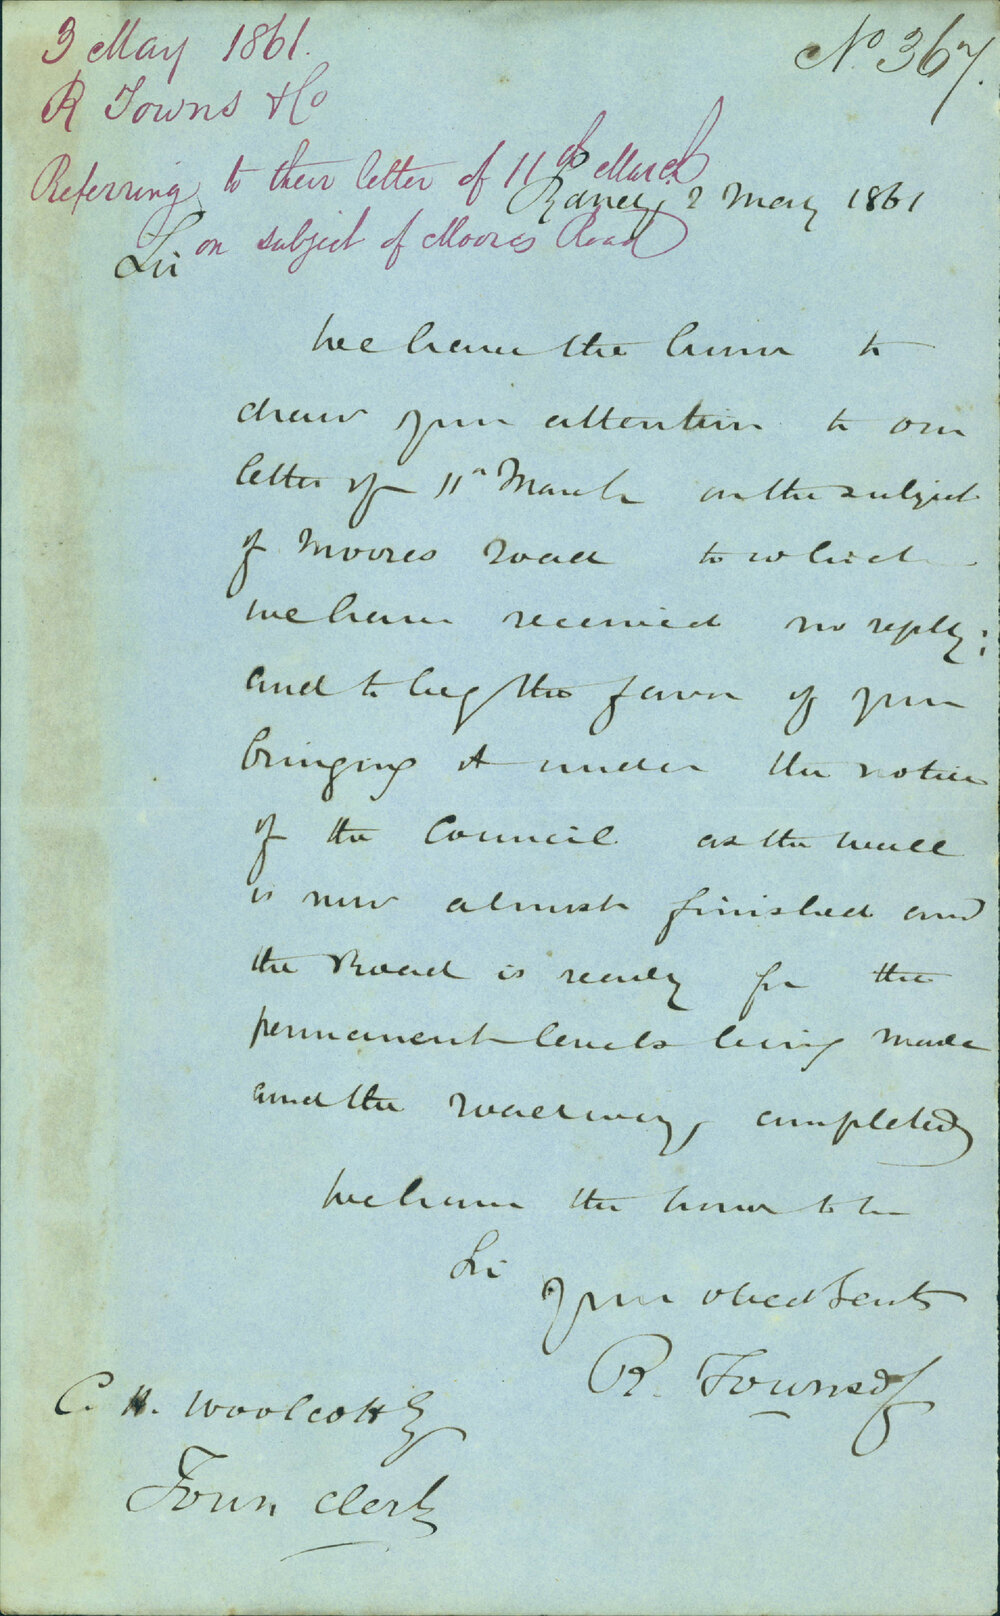 3 May 1861.
No 367.
R Towns & Co
Referring to their letter of 11th March
on subject of Moores Road
Sydney, 2 May 1861
Sir
We have the honor to
draw your attention to our
letter of 11th March on the subject
of Moores Road to which
we have received no reply;
and to beg the favor of your
bringing it under the notice
of the Council as the wall
is now almost finished and
the Road is ready for the
permanent levels being made
and the roadway, completed
We have the honor to be
Sir
Your obed Servts
R. Towns & Co
C. H. Woolcott
Town Clerk